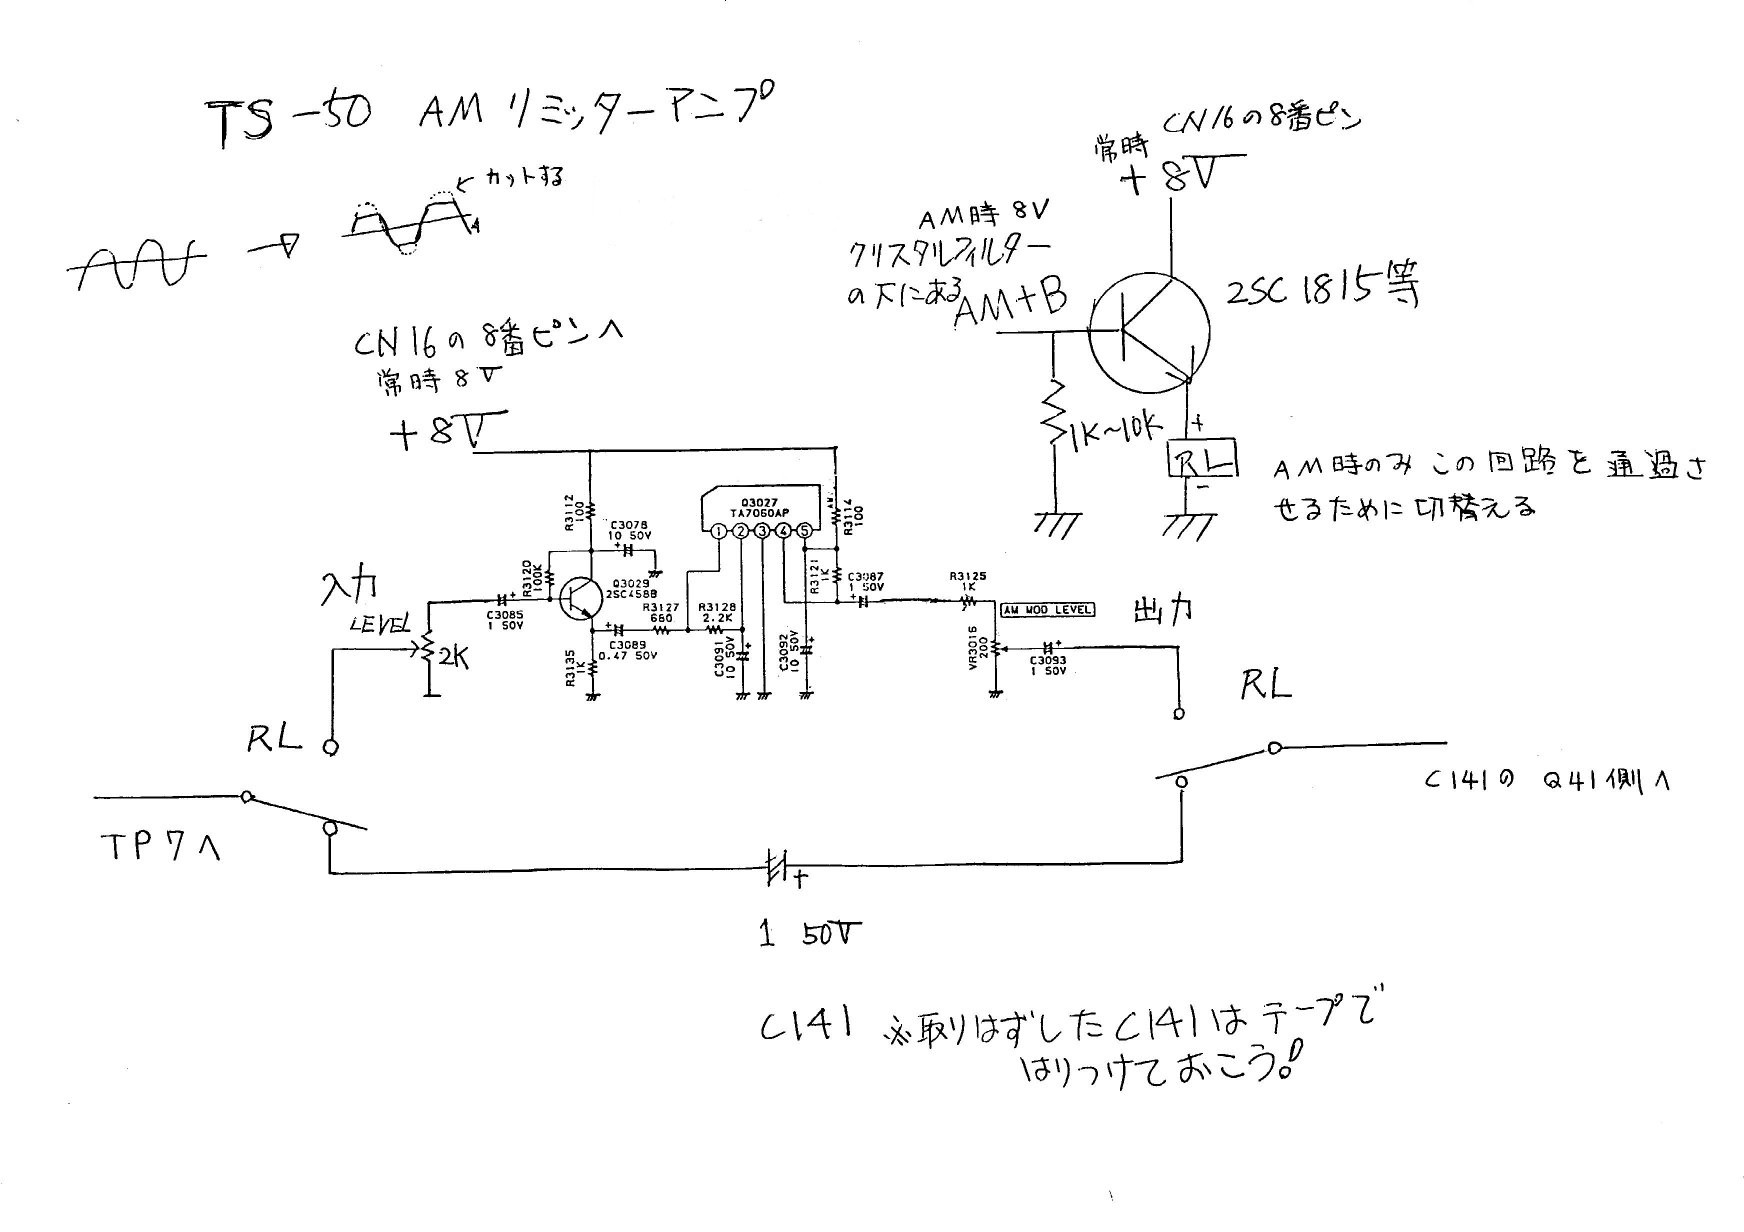 TS-50 AMリミッターアンプ
カットする
CN16の8番ピン
常時
+8V
AM時 8V
クリスタルフィルター
の下にある
AM+B
2SC1815等
1K~10K
+
RL
-
AM時のみ この回路を通過さ
せるために切替える
CN16の8番ピンへ
常時8V
+8V
R3112
100
C3078
10 50V
Q3027
TA7060AP
1 2 3 4 5
R3114
100
R3120
100K
Q3029
2SC458B
R3121
1K
C3087
1 50V
R3125
1K
AM MOD LEVEL
入力
LEVEL
2K
C3085
1 50V
R3127
680
R3128
2.2K
C3089
0.47 50V
R3135
1K
C3091
10 50V
C3092
10 50V
VR3016
200
C3093
1 50V
出力
RL
RL
TP7へ
C141の Q41側へ
+
1 50V
C141 ※取りはずしたC141はテープで
はりつけておこう!